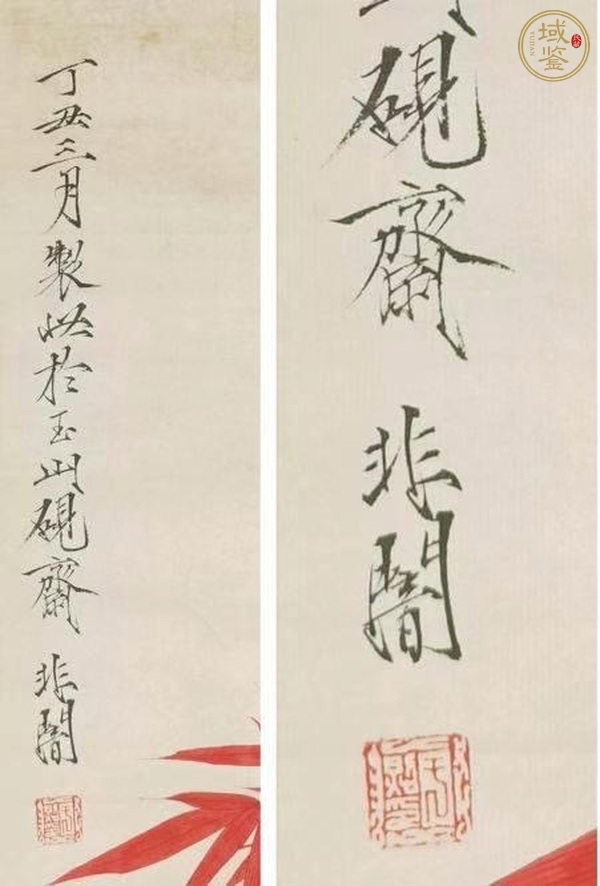 丁丑三月製此於玉山硯齋 非闇
硯齋 非闇
域鉴
YUJIAN